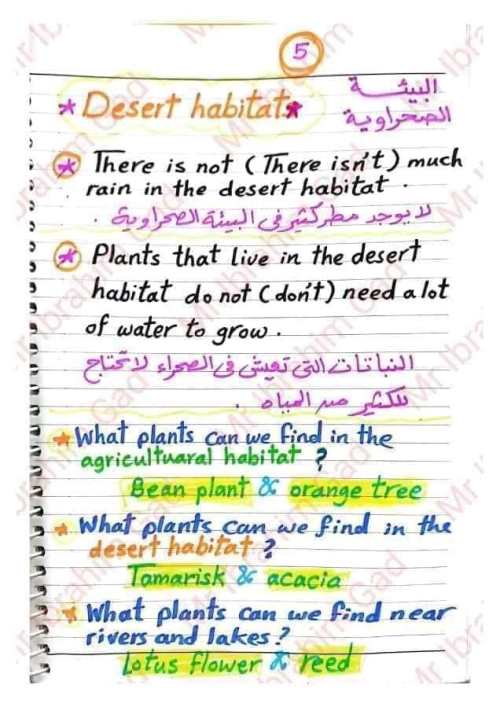 5
* Desert habitat *
البيئــة
الصحراوية
* There is not (There isn't) much
rain in the desert habitat .
لا يوجد مطر كثير في البيئة الصحراوية .
* Plants that live in the desert
habitat do not (don't) need a lot
of water to grow .
النباتات التي تعيش في الصحراء لا تحتاج
للكثير من المياه .
* What plants can we find in the
agricultuaral habitat ?
Bean plant & orange tree
* What plants can we find in the
desert habitat ?
Tamarisk & acacia
* What plants can we find near
rivers and lakes ?
Lotus flower & reed
Mr Ibrahim Gad